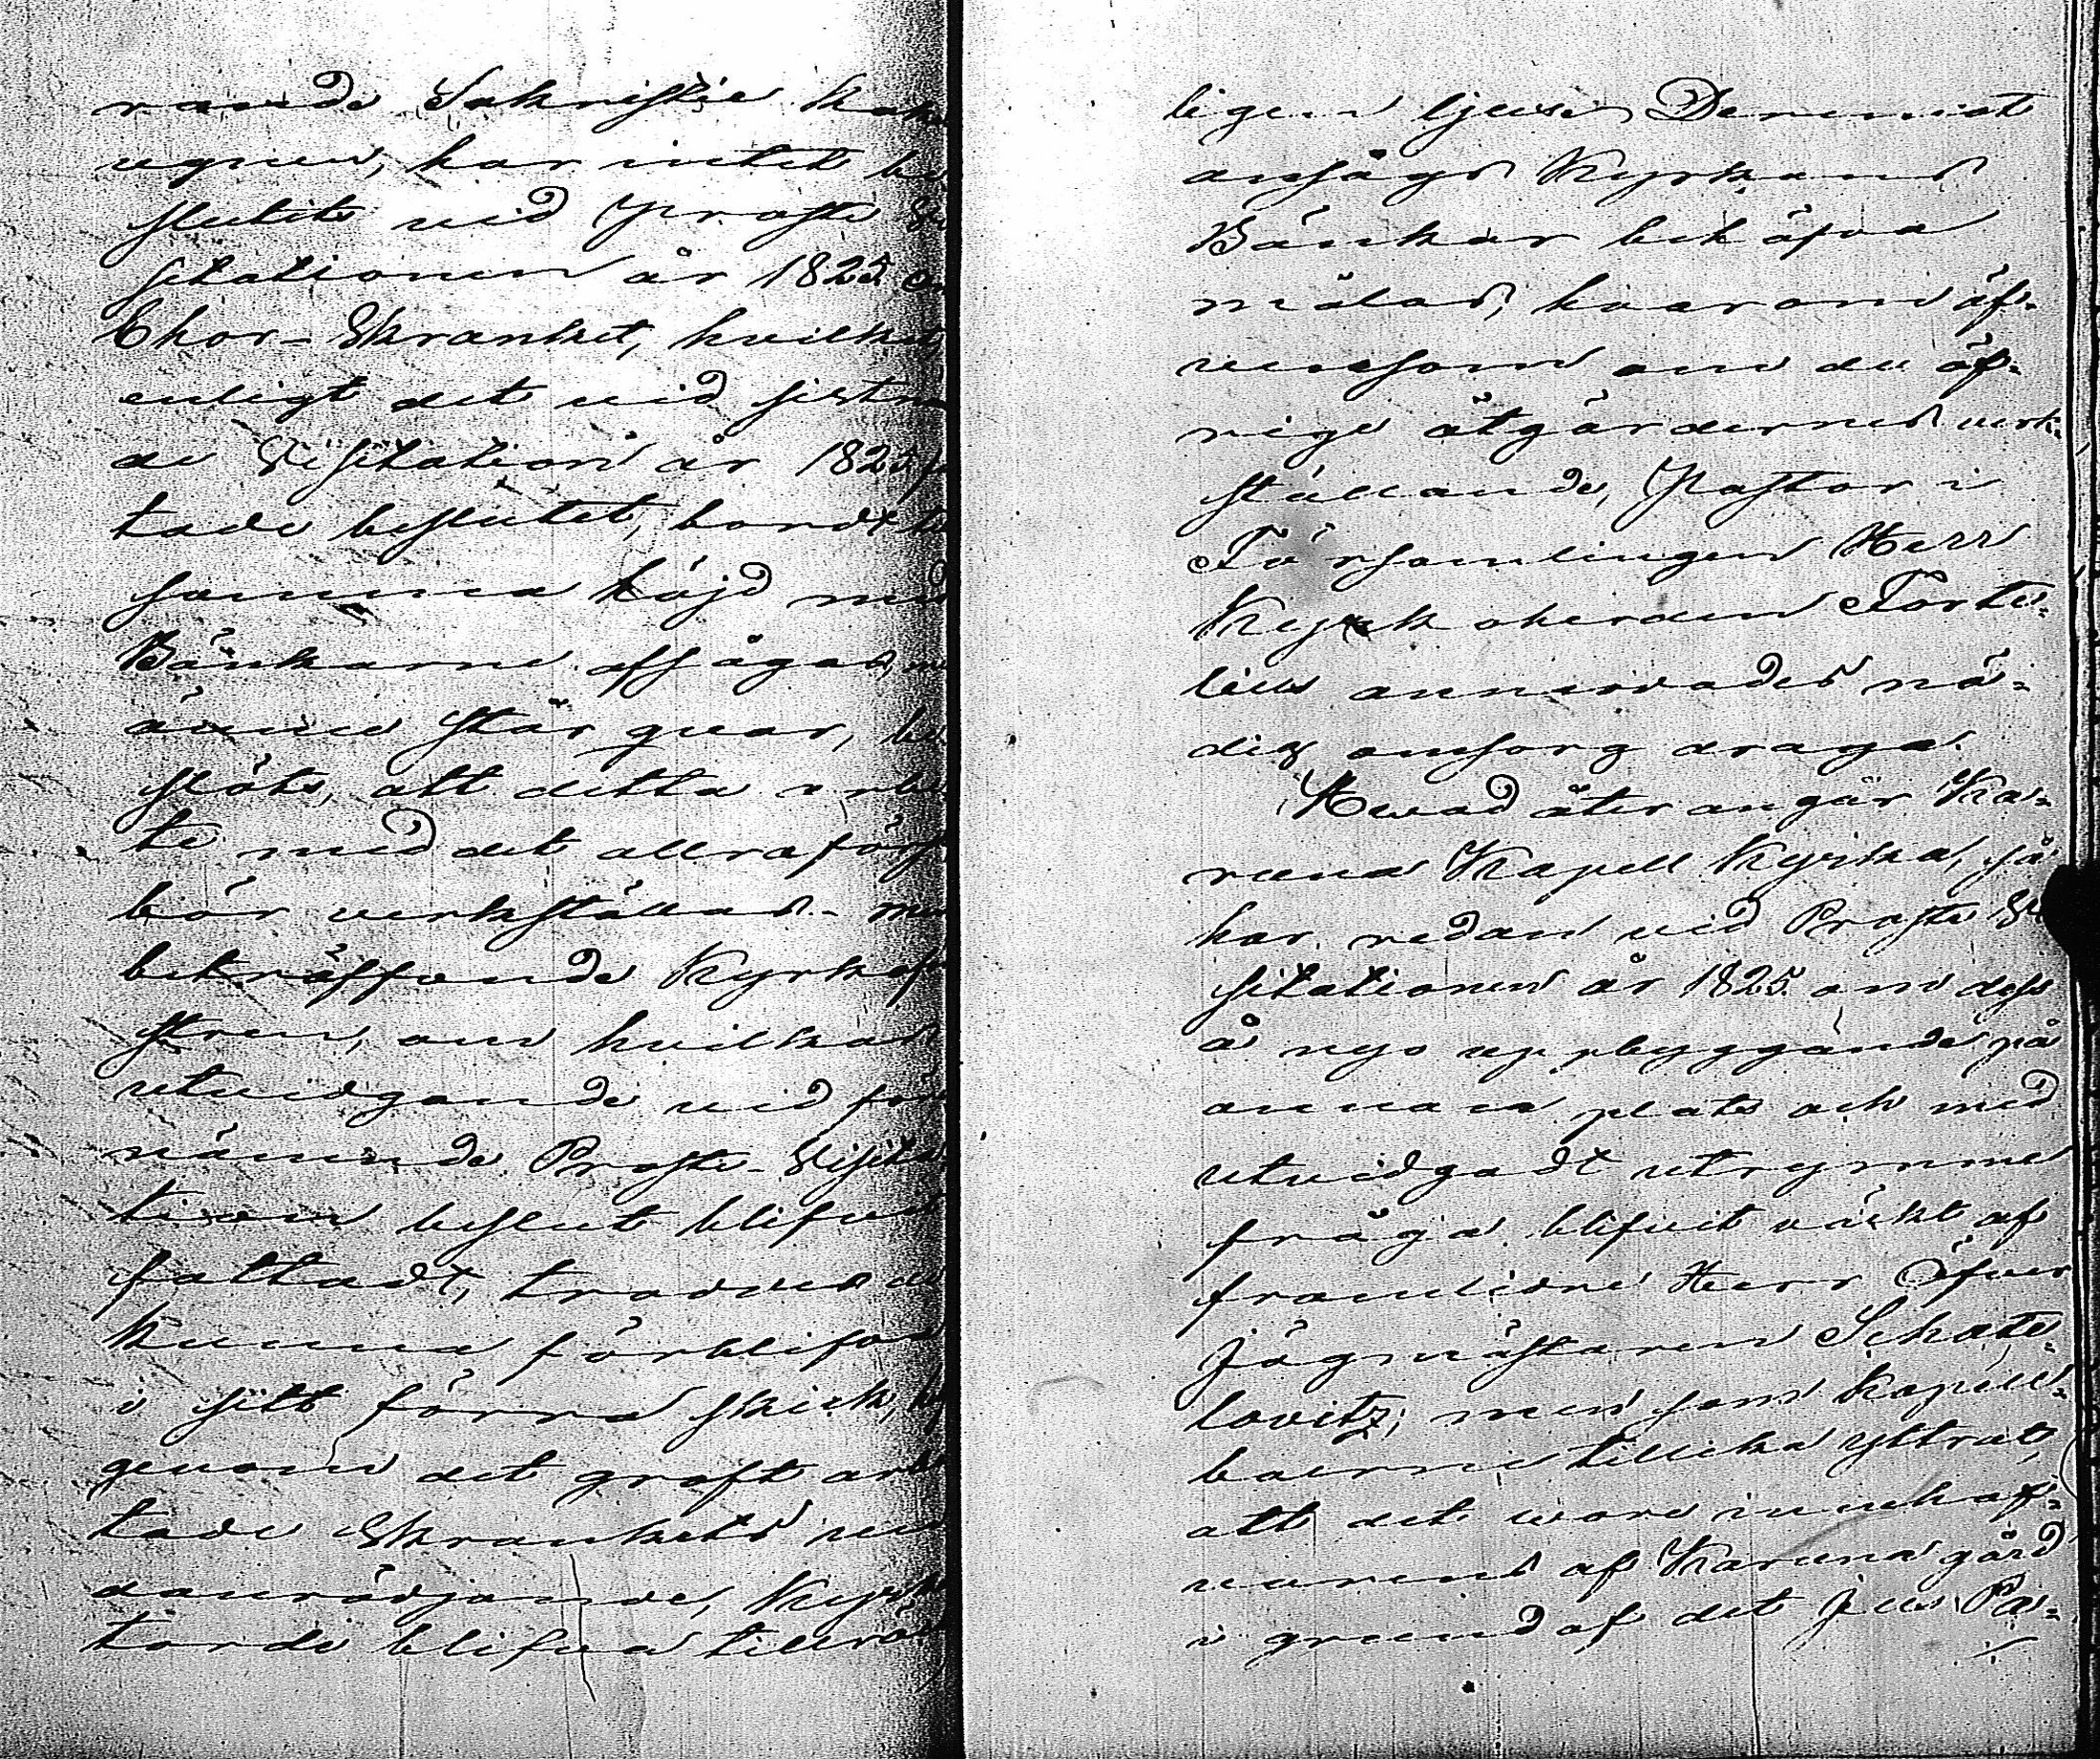 rande Sakristie kak
ugnen, har intet be
slutits vid Prosts Vi
sitationen år 1825.
Chor-Skranket, hvilket
enligt det vid sistn
de Visitation år 1825 f
tade beslutet, bordt
samma höjd med
Bänkarne afsågas, m
ännu står qvar, be
slöts, att detta arbe
te med det alleraförst
bör verkställas. Men
beträffande Kyrkof
stren, om hvilkas
utvidgande vid för
nämnde Prosts-Visita
tion beslut blifvit
fattadt, troddes de
kunna förblifva
i sitt förra skick,
genom det groft arbe
tade Skrankets un
danrödjande, Kyrk
torde blifva tillräck
ligen ljus. Deremot
ansågs Kyrkans
Bänkar behöfva
målas, hvarom äf-
vensom om de öf-
rige åtgärdernes verk-
ställande, Pastor i
Församlingen Herr
Kyrkoherden Forte-
lius anmodades nö-
dig omsorg draga.
Hvad åter angår Ka-
runa Kapell Kyrka, så
har redan vid Prosts Vi
sitationen år 1825. om dess
å nyo uppbyggande på
annan plats och med
utvidgadt utrymme
fråga blifvit väckt af
framlidne Herr Öfver
Jägmästaren Schate-
lovitz; men som Kapell-
boerne tillika yttrat,
att det wore innehaf-
varens af Karuna gård
i grund af det Jus Pa-